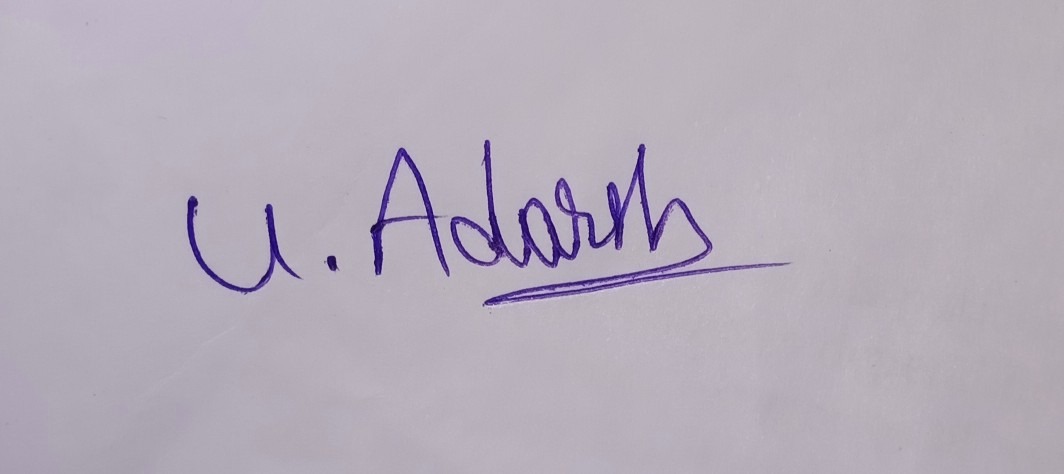 U. Adarsh